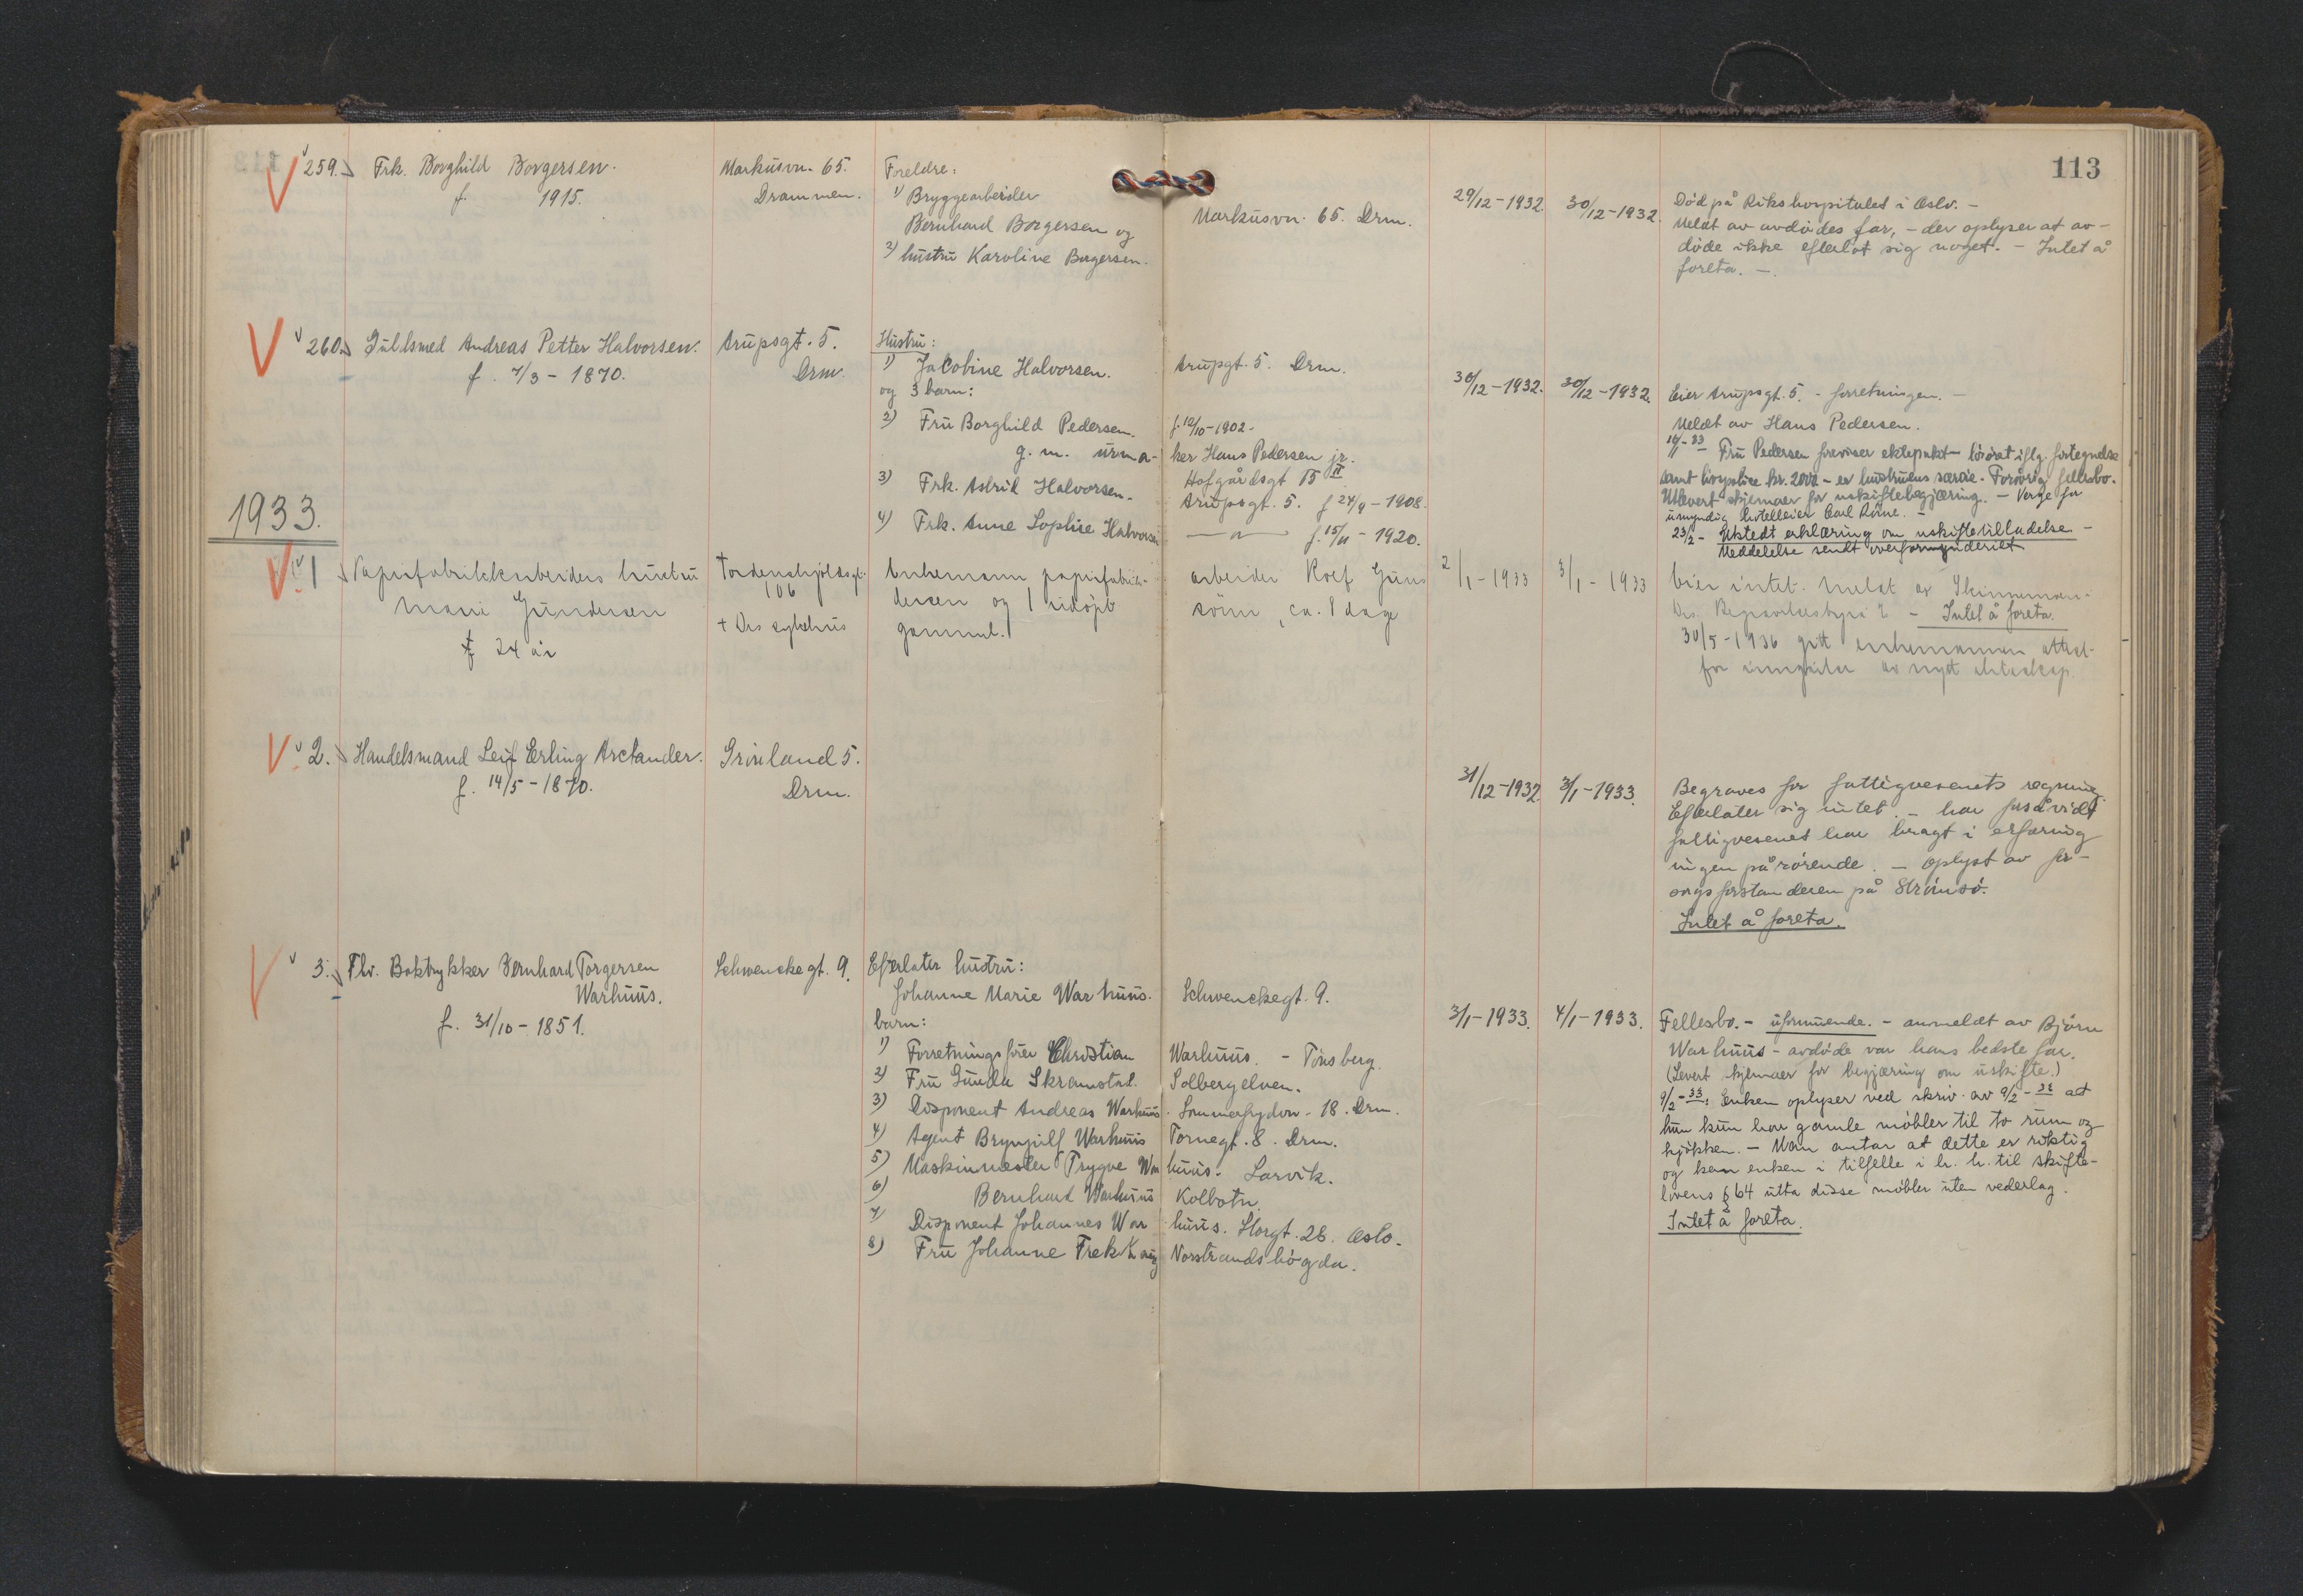 113
259. Frk. Borghild Borgersen.
f. 1915.
Markusvn. 65.
Drammen.
Foreldre:
1) Bryggearbeider
Bernhard Borgersen og
2) hustru Karoline Borgersen.
Markusvn. 65. Drm.
29/12-1932.
30/12-1932.
Død på Rikshospitalet i Oslo. -
Meldt av avdødes far, - der oplyser at av-
døde ikke efterlot sig noget. - Intet å
foreta. -
260. Gullsmed Andreas Petter Halvorsen.
f. 7/3 - 1870.
Arupsgt. 5.
Drm.
Hustru:
1) Jacobine Halvorsen.
og 3 barn:
2) Fru Borghild Pedersen.
g. m. urma-
3) Frk. Astrid Halvorsen.
4) Frk. Anne Sophie Halvorsen
Arupgt. 5. Drm.
f. 12/10-1902.
ker Hans Pedersen jr.
Hofgårdsgt 15 II
Arupsgt. 5. f 24/9 - 1908.
— " — f. 15/11 - 1920.
30/12-1932.
30/12-1932.
Eier Arupsgt. 5. - forretningen. -
Meldt av Hans Pedersen.
16/1-33 Fru Pedersen foreviser ektepakt - løsøret iflg. fortegnelse
samt livspolise kr. 2000 - er hustruens særeie. Forøvrig fellesbo.
Utlevert skjemaer for uskiftebegjæring. - Verge for
umyndig hotelleier Carl
23/2 - Utstedt erklæring om uskiftetilladelse -
Meddelelse sendt overformynderiet
1933.
1 Papirfabrikkarbeiders hustru
Mari Gundersen
f 24 år
Tordenskjoldsgt.
106
+ Drs sykehus
Enkemann papirfabrik-
dersen og 1 nidøpt
gammel.
arbeider Rolf Gun-
sønn, ca. 8 dage
2/1 - 1933
3/1 - 1933
Eier intet. Meldt av Skinnemoen.
Drs. Begravelsesbyrå - Intet å foreta.
30/5-1936 gitt enkemannen attest
for inngåelse av nytt ekteskap.
2. Handelsmand Leif Erling Arctander.
f. 14/5 - 1870.
Grønland 5.
Drm.
31/12-1932.
3/1-1933.
Begraves for fattigvesenets regning.
Efterlater sig intet. - har forsåvidt
fattigvesenet har bragt i erfaring
ingen pårørende. - Oplyst av for-
sorgsforstanderen på Strømsø.
Intet å foreta.
3. Fhv. Boktrykker Bernhard Torgersen
Warhuus.
f. 31/10 - 1851.
Schwenckegt. 9.
Efterlater hustru:
Johanne Marie Warhuus.
barn:
1) Forretningsfører Christian
2) Fru Gunda Skramstad.
3) Disponent Andreas Warhuus
4) Agent Brynjulf Warhuus
5) Maskinmester Trygve War
6) Bernhard Warhuus
7) Disponent Johannes War
8) Fru Johanne
Schwenckegt. 9.
Warhuus. - Tønsberg.
Solbergelven.
Sommerfrydvn. 18. Drm.
Tornegt. 8. Drm.
huus. Larvik.
Kolbotn.
huus. Storgt. 26. Oslo.
Norstrandshøgda.
3/1-1933.
4/1-1933.
Fellesbo. - uformuende. - anmeldt av Bjørn
Warhuus - avdøde var hans bedstefar.
(Levert skjemaer for begjæring om uskifte.)
9/2-33: Enken oplyser ved skriv. av 9/2-33 at
hun kun har gamle møbler til to rum og
kjøkken. - Man antar at dette er riktig
og kan enken i tilfelle i h. h. til skifte-
lovens § 64 utta disse møbler uten vederlag.
Intet å foreta.